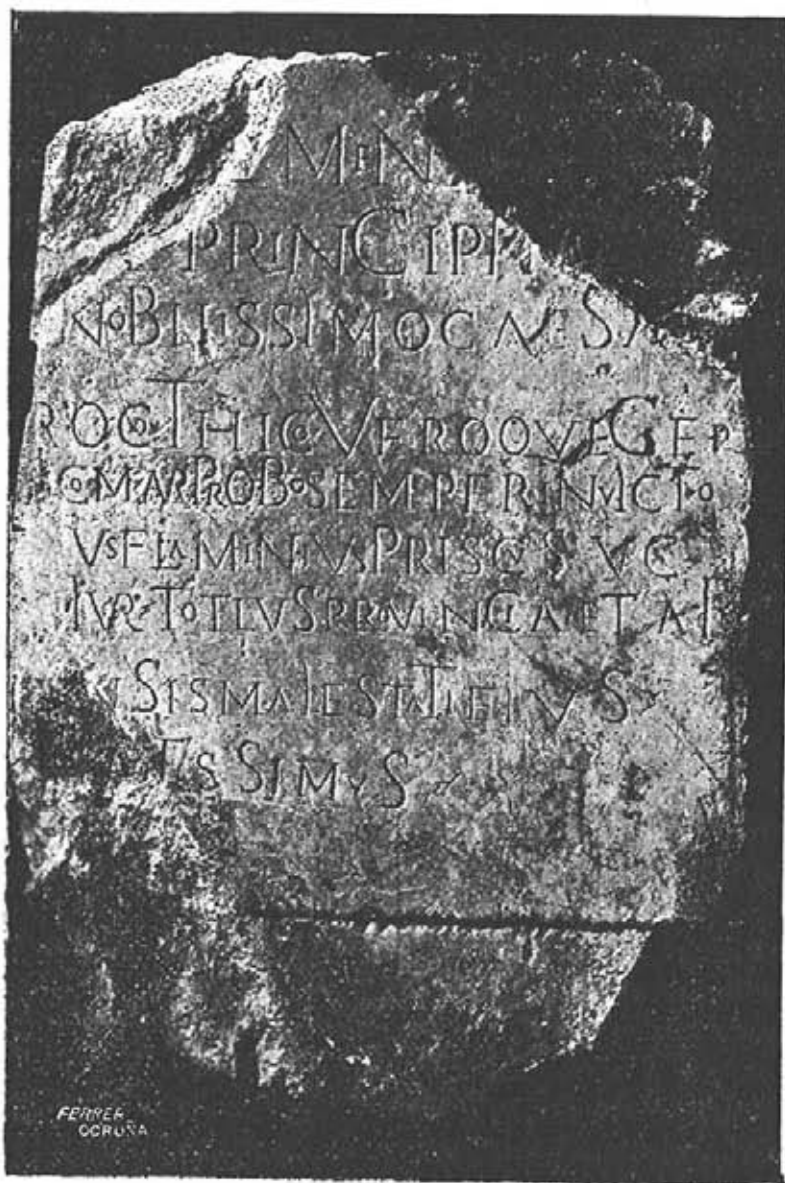 MIN
PRINCIPI
NOBILISSIMO CAESA
GOTHICO VEROQVE GER
CO M AVR PROBO SEMPER INVICTO
VS FLAMINIVS PRISCVS V C
IVR TOTIVS PROVINCIAE TA
NSIS MAIESTATI EIVS
ISSIMVS
FERRER
CORUÑA